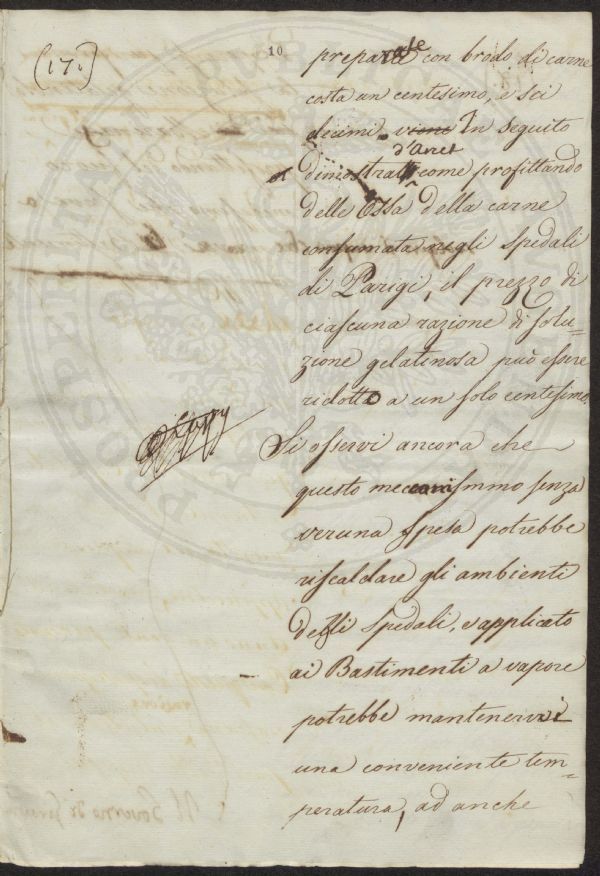 (17.)
10
preparate con brodo di carne
costa un centesimo, e sei
decimi. viene In seguito
d'Arcet
dimostrato come profittando
delle Ossa della carne
consumata negli Spedali
di Parigi, il prezzo di
ciascuna razione di solu=
zione gelatinosa può essere
ridotto a un solo centesimo.
Si osservi ancora che
questo meccanismmo senza
veruna Spesa potrebbe
riscaldare gli ambienti
degli Spedali, e applicato
ai Bastimenti a vapore
potrebbe mantenervi
una conveniente tem=
peratura, ad anche